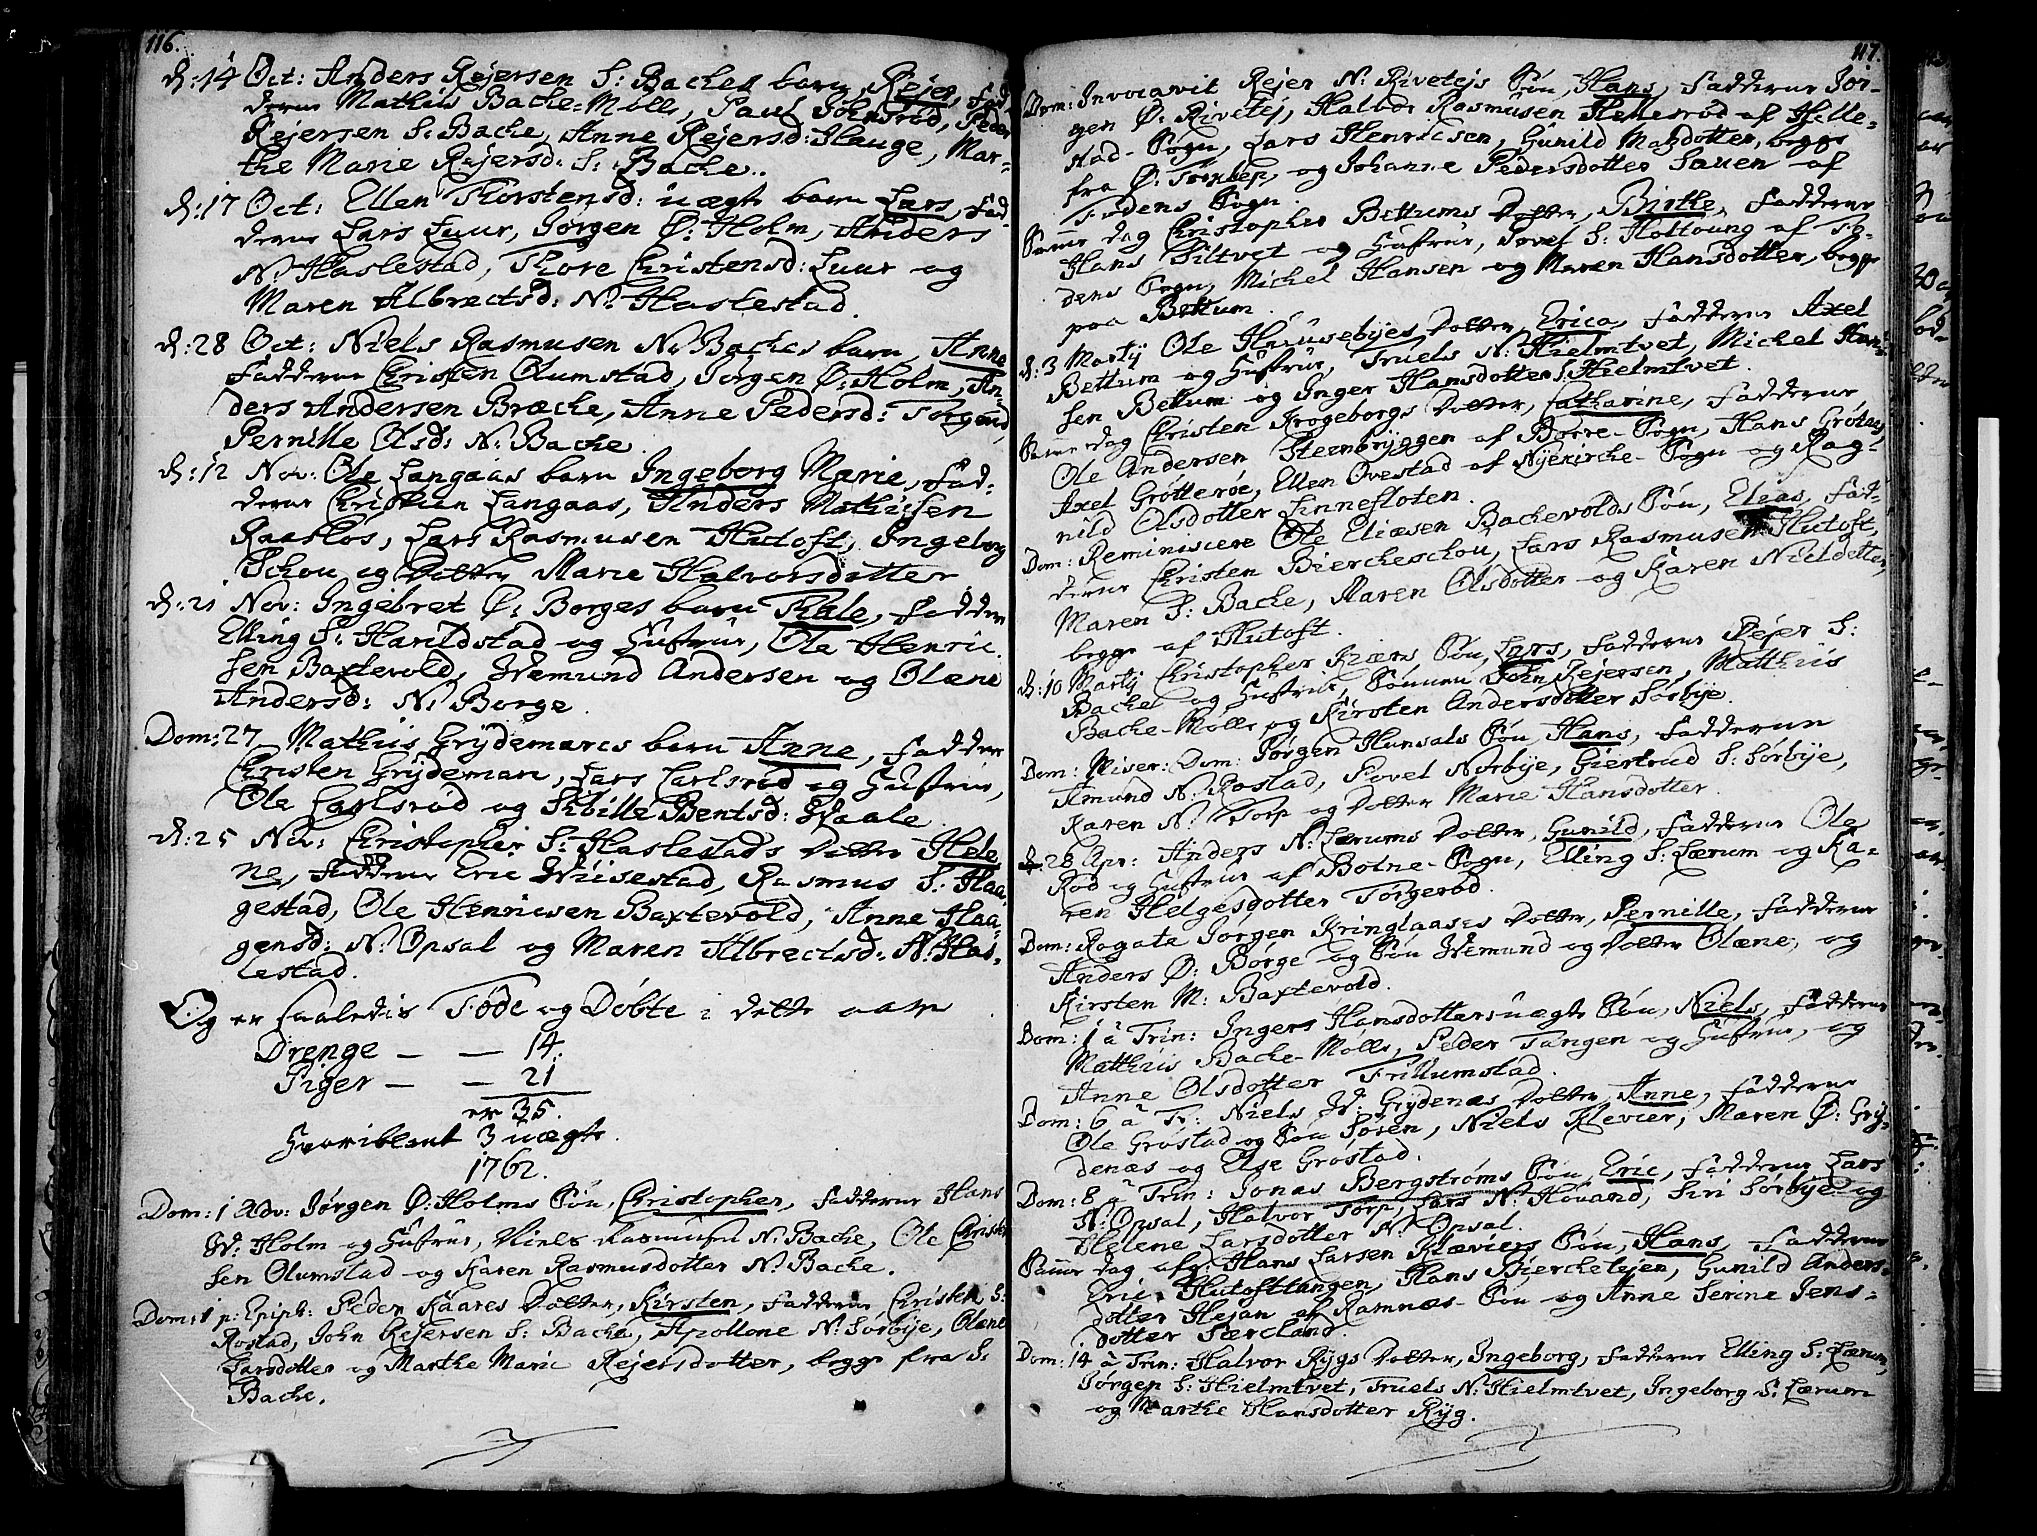 116.
d: 14 Oct: Anders Rejersen S: Baches barn Rejer, Fad
derne Mathiis Bache-Mølle, Paul Johnsrød, Peder
Rejersen S: Bache, Anne Rejersd: Hauge, Mar-
the Marie Rejersd: S: Bache.
d: 17 Oct: Ellen Thorstensd: uægte barn Lars, Fad
derne Lars Luur, Jørgen Ø: Holm, Anders
N: Haslestad, Thore Christensd: Luur og
Maren Albrectsd: N: Haslestad.
d: 28 Oct: Niels Rasmusen N: Baches barn, Anne
Fadderne Christen Olumstad, Jørgen Ø: Holm, An-
ders Andersen Bræche, Anne Pedersd:
Pernille Olsd: N: Bache.
d: 12 Nov: Ole Langaas barn Ingeborg Marie, Fad-
derne Christian Langaas, Anders Mathisen
Raastøs, Lars Rasmusen Hutoft, Ingeborg
Schou og Dotter Marie Halvorsdotter
d: 21 Nov: Ingebret Ø: Borges barn Thale, Fadder
Elling S: Harildstad og Hustrue, Ole Henric
sen Baxtevold, Wemund Andersen og Olæne
Andersd: N: Borge.
Dom: 27 Mathiis Grydemarcs barn Anne, Fadder
Christen Grydeman, Lars Carlsrød og Hustrue,
Ole Carlsrød og Sibille Bentsd: Waale.
d: 25 Nov: Christopher S: Haslestads Dotter Hele
ne, Fadderne Eric Wiisestad, Rasmus S: Haa
gestad, Ole Henricsen Baxtevold, Anne Haa-
gensd: N: Opsal og Maren Albrectsd: N: Has-
lestad.
Og er saaledis Føde og Døbte i dette aar
Drenge — — 14.
Piger — — 21
er 35.
Hvoriblant 3 uægte.
1762.
Dom: 1 Adv: Jørgen Ø: Holms Søn, Christopher, Fadderne Hans
W: Holm og Hustrue, Niels Rasmusen N: Bache, Ole Christen
sen Olumstad og Karen Rasmusdotter N: Bache.
Dom: 1 p: Epiph: Peder Kaares Dotter, Kirsten, Fadderne Christen S:
Rostad, John Rejersen S: Bache, Apollone N: Sørbye, Olæne
Larsdotter og Marthe Marie Rejersdotter, begge fra S:
Bache.
117.
Dom: Invocavit Rejer N: Rivetejs Søn, Hans, Fadderne Jør-
gen Ø: Rivetej, Halvor Rasmusen Hellesrød af Hille-
stad-Sogn, Lars Henricsen, Gunild Matsdotter, begge
fra Ø: og Johanne Pedersdotter Sauen af
Fødens Sogn.
Samme dag Christopher Bettums Dotter, Birthe, Fadderne
Hans Siltvet og Hustrue, Povel S: af Fø-
dens Sogn, Michel Hansen og Maren Hansdotter, begge
paa Bettum.
d: 3 Martij Ole Huusebyes Dotter, Erica, Fadderne Axel
Bettum og Hustrue, Truels N: Hielmtvet, Michel Han-
sen Bettum og Inger Hansdotter S: Hielmtvet.
Samme dag Christen Krogeborgs Dotter, Catharine, Fadderne,
Ole Andersen Steenbryggen af Borre-Sogn, Hans Grøterø,
Axel Grøtterøe, Ellen Ovestad af Nykirche-Sogn og Rag-
nild Olsdotter Linnesloten.
Dom: Reminiscere Ole Eliæsen Bachevolds Søn, Elias, Fad-
derne Christen Biercheschou, Lars Rasmusen Hutoft,
Maren S: Bache, Maren Olsdotter og Karen Nielsdotter,
begge af Hutoft.
d: 10 Martij Christopher Kiærs Søn, Lars, Fadderne Rejer S:
Bache og Hustrue, Sønnen John Rejersen, Matthiis
Bache-Mølle og Kirsten Andersdotter Sørbye.
Dom: Miser: Dom: Jørgen Hunsals Søn, Hans, Fadderne
Amund N: Rostad, Povel Nørbye, Giertrud S: Sørbye,
Karen N: Torp og Dotter Marie Hansdotter.
d: 28 Apr: Anders N: Lærums Dotter, Gunild, Fadderne Ole
Rød og Hustrue af Botne-Sogn, Elling S: Lærum og Ka-
ren Helgesdotter Tørgerød.
Dom: Rogate Jørgen Kringlaases Dotter, Pernille, Fadderne
Anders Ø: Borge og Søn Wemund og Dotter Olæne, og
Kirsten M: Baxtevold.
Dom: 1 à Trin: Ingers Hansdotters uægte Søn, Niels, Fadderne
Matthiis Bache-Mølle, Peder Tangen og Hustrue, og
Anne Olsdotter Trillumstad.
Dom: 6 à Tr: Niels W: Grydenæs Dotter, Anne, Fadderne
Ole Grostad og Søn Søren, Niels Klevier, Maren Ø: Gry-
denæs og Else Grostad.
Dom: 8 à Trin: Jonas Bergstrøms Søn, Eric, Fadderne Lars
N: Opsal, Halvor Torp, Lars N: Hovand, Siri Sørbye og
Helene Larsdotter N: Opsal.
Samme dag afg: Hans Larsen Klæviers Søn, Hans, Fadderne
Eric Hutofttangen, Hans Bierchetejen, Gunild Anders-
dotter Hejan af Ramnæs-Sou og Anne Serine Jens-
dotter Særcland.
Dom: 14 à Trin: Halvor Rygs Dotter, Ingeborg, Fadderne Elling S: Lærum,
Jørgen S: Hielmtvet, Truels N: Hielmtvet, Ingeborg S: Lærum
og Marthe Hansdotter Ryg.